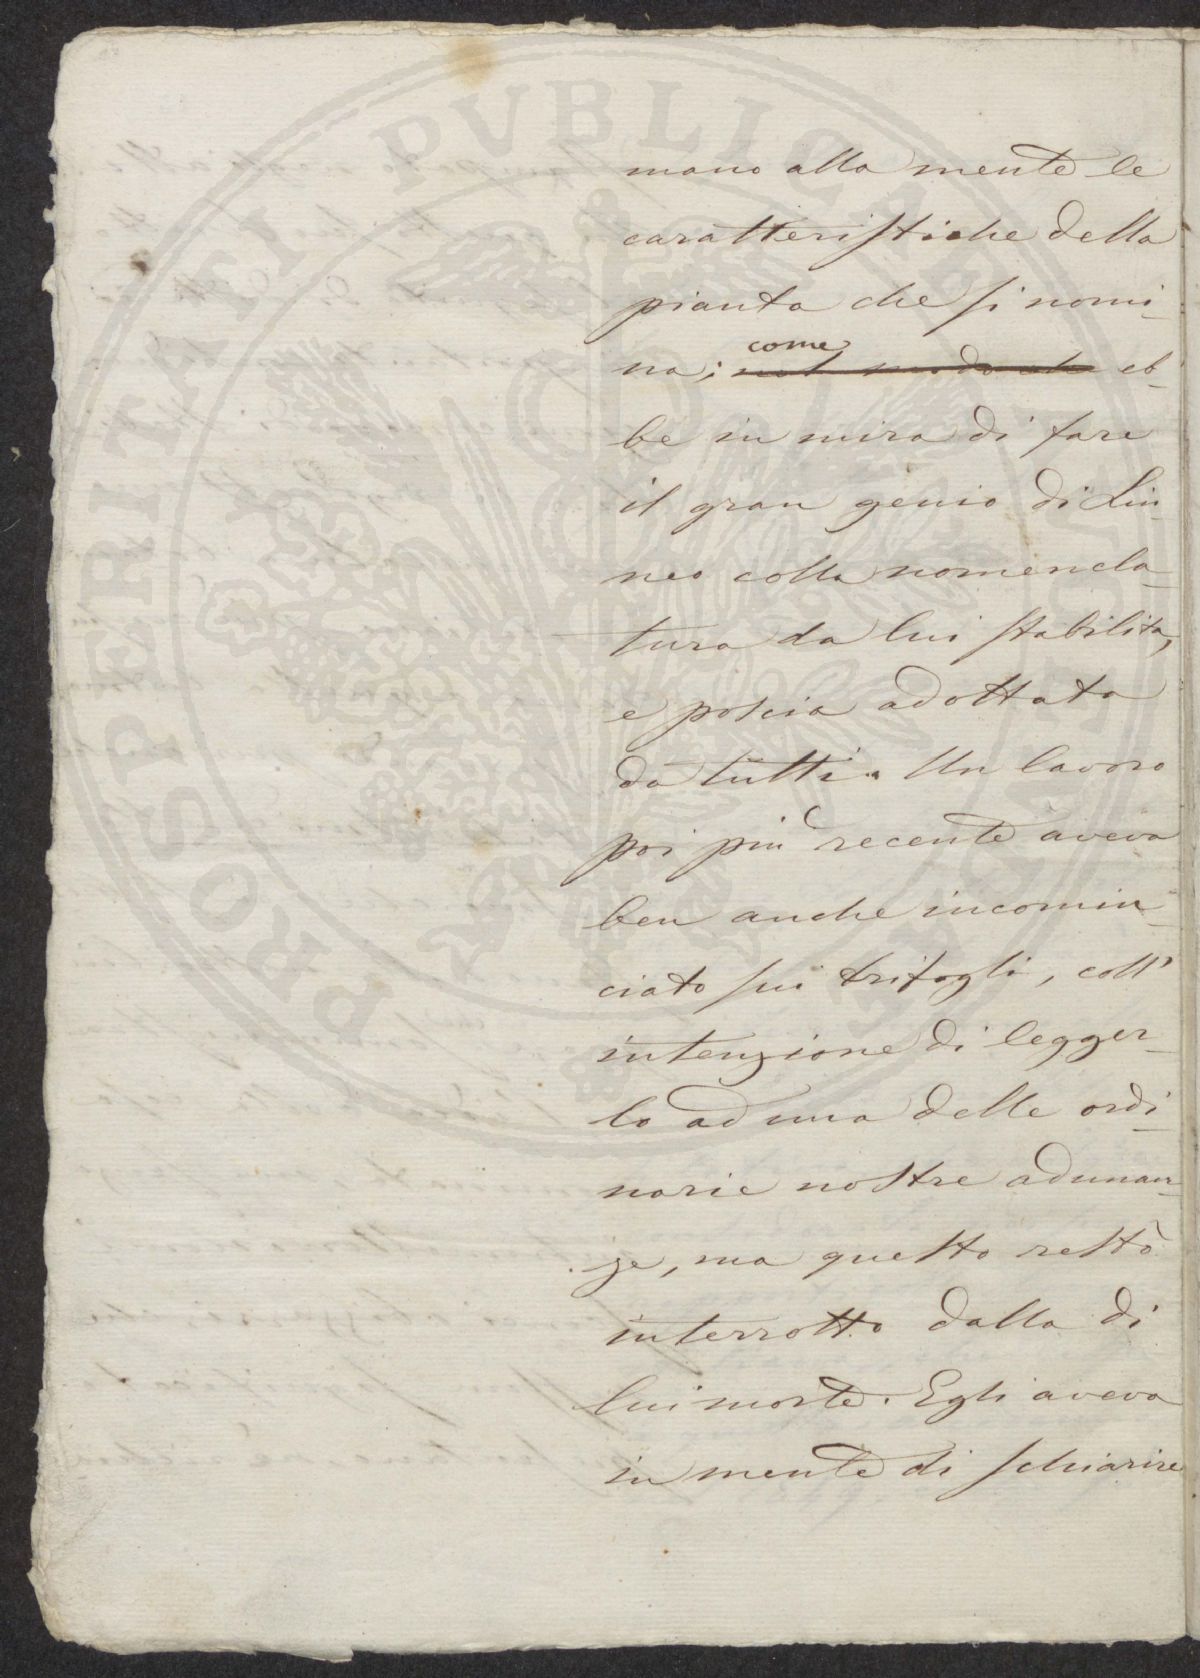 mano alla mente le
caratteristiche della
pianta che si nomi-
na; come
nel modo che eb-
be in mira di fare
il gran genio di Lin-
neo colla nomencla-
tura da lui stabilita,
e poscia adottata
da tutti. Un lavoro
poi più recente aveva
ben anche incomin-
ciato sui trifogli, coll'
intenzione di legger-
lo ad una delle ordi-
narie nostre adunan-
ze, ma questo restò
interrotto dalla di
lui morte. Egli aveva
in mente di schiarire
PROSPERITATI PVBLICAE